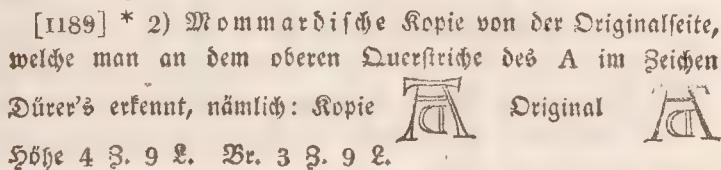 [1189] * 2) Mommardische Kopie von der Originalseite,
welche man an dem oberen Querstriche des A im Zeichen
Dürer's erkennt, nämlich: Kopie AD Original AD
Höhe 4 Z. 9 L. Br. 3 Z. 9 L.